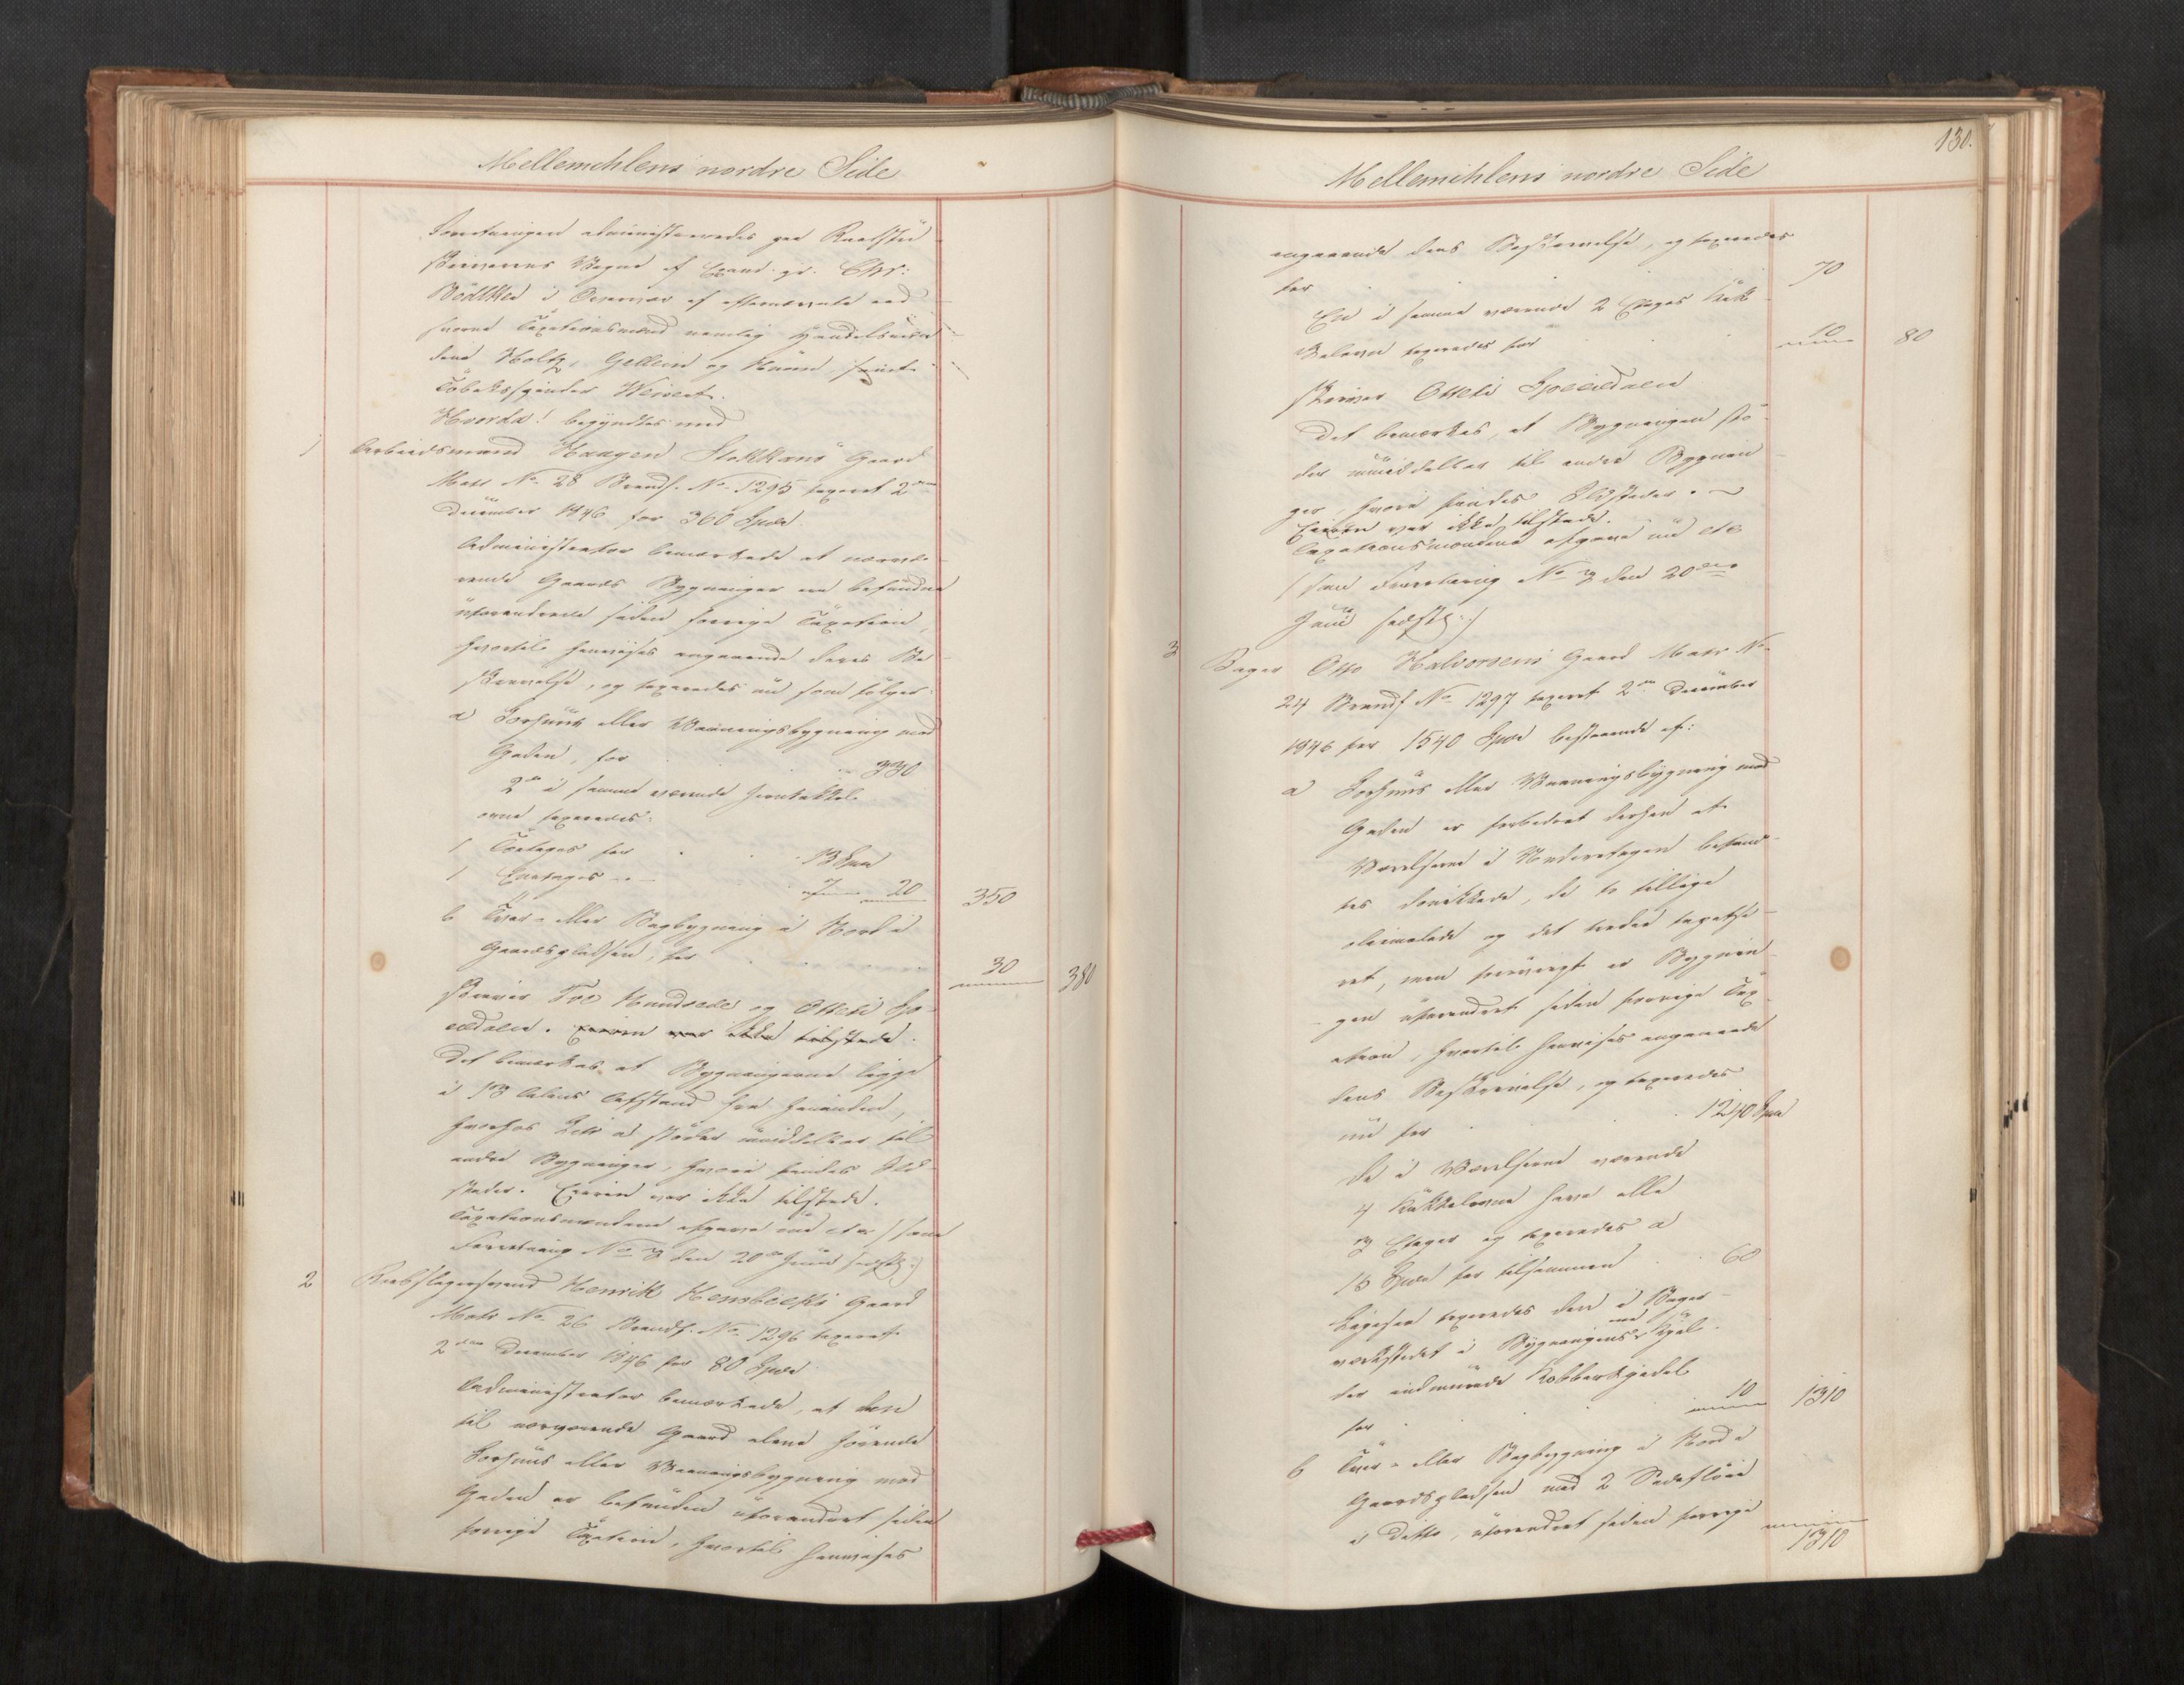 Mellemihlens nordre Side
Forretningen administreredes paa Raadstu
skriverens Vegne af Cand. jur. Chr:
Bödtker i Overvær af efternævnte ed
svorne Taxationsmænd nemlig Handelsmæn
dene Holtz, Gellein og samt
Tobaksspinder Weisert.
Hvorda! begyndtes med
1 Arbeidsmand Haagen Stokkans Gaard
Matr No 28 Brandf. No 1295 taxeret 2den
December 1846 for 360 Spd
Administrator bemærkede at nærvæ
rende Gaards Bygninger ere befundne
uforandrede siden forrige Taxation,
hvortil henvises angaaende deres Be
skrivelse, og taxeredes nu som følger:
a Forhuus eller Vaaningsbygning mod
Gaden, for 330
2de i samme værende Jernkakkel
ovne taxeredes:
1 Toetages for 13 Spd
1 Eenetages - 7 20 350
b Tver- eller Bagbygning i Nord i
Gaardspladsen, for 30 380
skriver Toe Hundrede og Otteti Spe
ciedaler. Eieren var ikke tilstede.
Det bemærkes at Bygningerne ligge
i 13 Alens Afstand fra hinanden,
hvorhos Litr a støder umiddelbar til
andre Bygninger, hvori findes Ild
steder. Eieren var ikke tilstede.
Taxationsmændene afgave nu etc (som
Forretning No 3 den 20de Juni sidstl:)
2 Kobbslagersvend Henrik Hembecks Gaard
Matr No 26 Brandf. No 1296 taxeret
2den December 1846 for 80 Spd
Administrator bemærkede, at den
til nærværende Gaard alene hörende
Forhuus eller Vaaningsbygning mod
Gaden er befunden uforandret siden
forrige Taxation, hvortil henvises
130.
Mellemihlens nordre Side
angaaende dens Beskrivelse, og taxeredes
for 70
En i samme værende 2 Etages Kak
kelovn taxeredes for 10 80
skriver Otteti Speciedaler
Det bemærkes, at Bygningen stö
der umiddelbar til andre Bygnin
ger, hvori findes Ildsteder.
Eieren var ikke tilstede.
Taxationsmændene afgave nu etc
(som Forretning No 3 den 20de
Juni sidstl:)
3 Bager Otto Halvorsens Gaard Matr No
24 Brandf No 1297 taxeret 2den December
1846 for 1540 Spd bestaaende af:
a Forhuus eller Vaaningsbygning mod
Gaden er forbedret derhen at
Værelserne i Underetagen befand
tes de to tillige
oliemalede og det tredie tapetse
ret, men forövrigt er Bygnin
gen uforandret siden forrige Tax
ation, hvortil henvises angaaende
dens Beskrivelse, og taxeredes
nu for 1240 Spd
De i Værelserne værende
4 Kakkelovne have alle
3 Etager og taxeredes a
15 Spd for tilsammen 60
Ligesaa taxeredes den i Bager
værkstedet i Bygningens Kjel
der indmurede Kobberkjedel
for 10 1310
b Tver- eller Bagbygning i Nord i
Gaardspladsen med 2 Sideflöie
i Ditto, uforandret siden forrige
1310